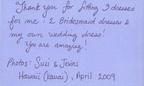 Thank you for fitting 3 dresses
for me: 2 Bridesmaid dresses &
my own wedding dress!
You are amazing!
Photos: Susi &
Hawaii (Kauai), April 2009